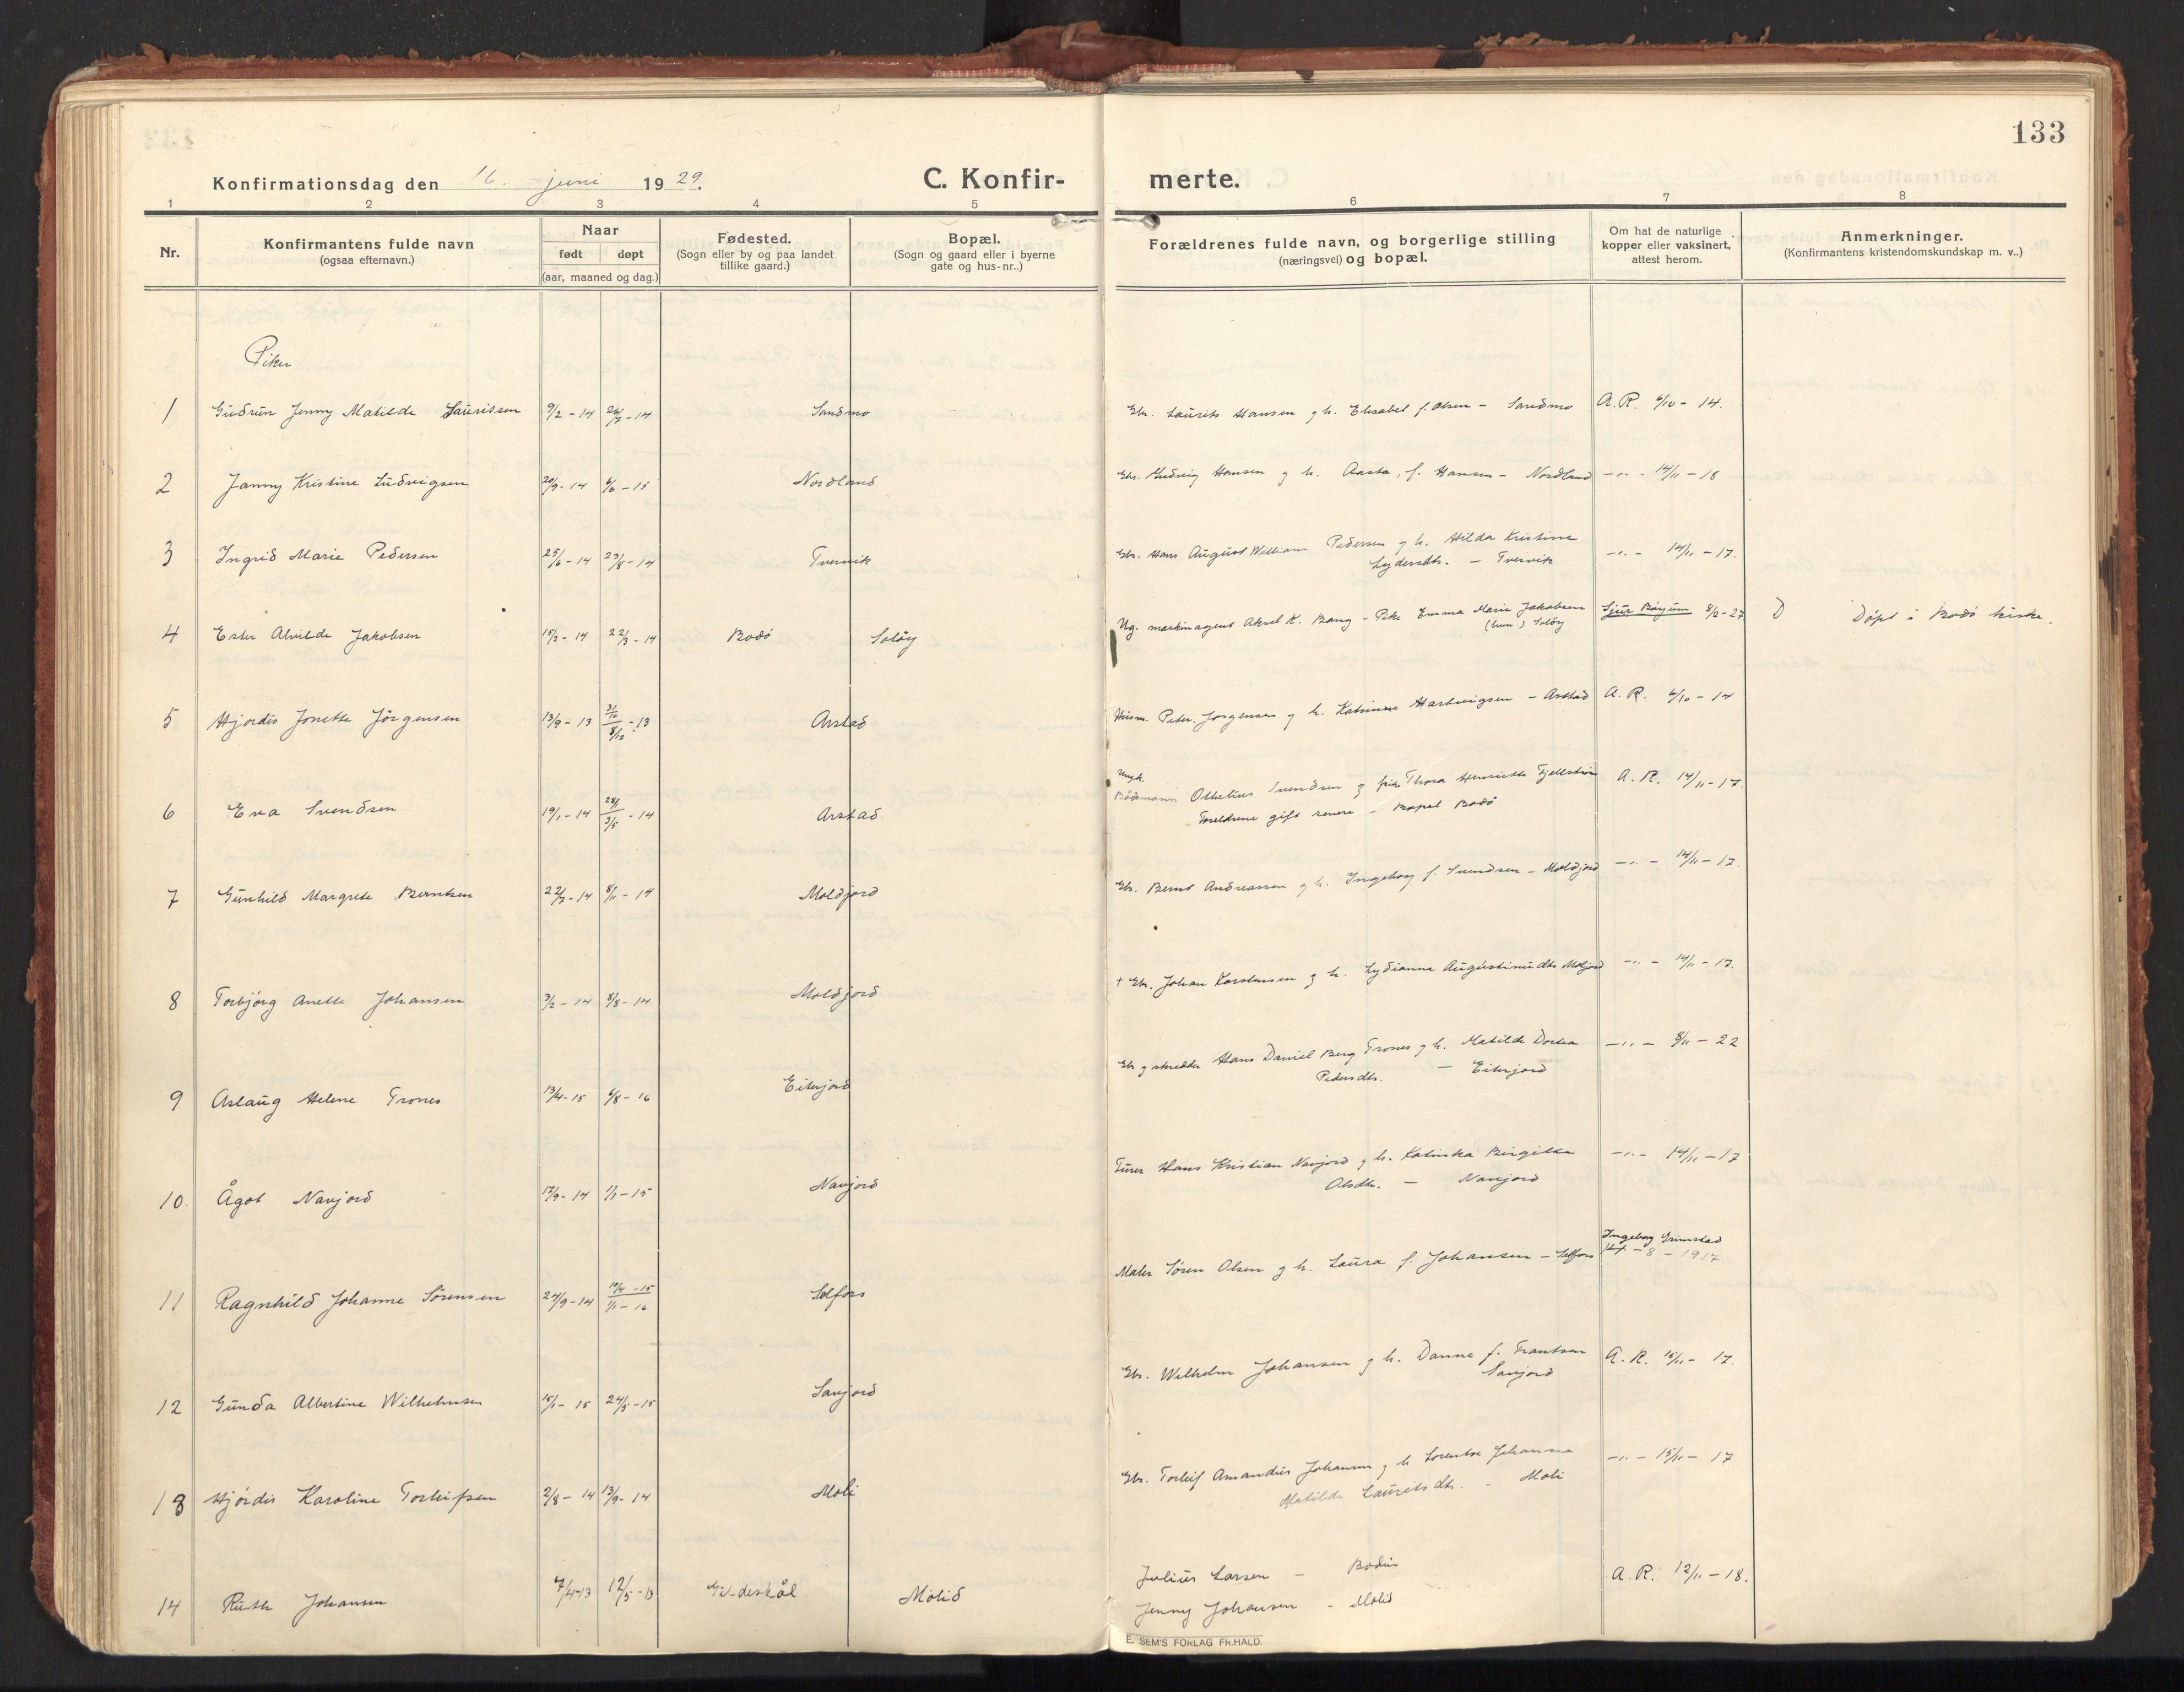 133
Konfirmationsdag den 16. juni 1929.
C. Konfir- merte.
1 2 3 4 5 6 7 8
Nr.
Konfirmantens fulde navn
(ogsaa efternavn.)
Naar
født døpt
(aar, maaned og dag.)
Fødested.
(Sogn eller by og paa landet
tillike gaard.)
Bopæl.
(Sogn og gaard eller i byerne
gate og hus-nr..)
Forældrenes fulde navn, og borgerlige stilling
(næringsvei) og bopæl.
Om hat de naturlige
kopper eller vaksinert,
attest herom.
Anmerkninger.
(Konfirmantens kristendomskundskap m. v..)
Piker
1 Gudrun Jenny Matilde Lauritsen 9/2-14 -14 Sandmo Gbr. Laurits Hansen g h. Elisabet f. Olsen - Sandmo A.R. 6/10-14.
2 Janny Kristine Ludvigsen 20/9-14 6/6-15 Nordland Gbr. Ludvig Hansen g h. Aasta, f. Hansen - Nordland -"- 14/11-18
3 Ingrid Marie Pedersen 25/6-14 23/8-14 Tvervik Gbr. Hans August William Pedersen g h. Hilda Kristine
Lydersdtr. - Tvervik -"- 14/11-17.
4 Ester Alvilde Jakobsen 15/2-14 22/3-14 Bodø Soløy Ug. maskinagent Aksel K. Bang - Pike Emma Marie Jakobsen
(hun.) Soløy Sjur Bøyum 8/2-27 D Døpt i Bodø kirke.
5 Hjordis Jonette Jørgensen 13/9-13 31/10 8/12-13 Arstad Husm. Peter Jørgensen g h. Katrine Hartvigsen - Arstad A.R. 6/10-14
6 Eva Svendsen 19/1-14 28/1 3/5-14 Arstad Ungk.
Othelius Svendsen g pike Thora Henriette
Foreldrene gift senere - Bopel Bodø A.R. 14/11-17.
7 Gunhild Margrete Berntsen 22/7-14 8/11-14 Moldjord Gbr. Bernt Andreassen g h. Ingeborg f. Svendsen - Moldjord -"- 14/11-17.
8 Torbjørg Anette Johansen 3/2-14 8/8-14 Moldjord + Gbr. Johan Karstensen g h. Lydianna Augustinudtr Moljord -"- 14/11-17.
9 Aslaug Helene Trones 13/4-15 6/8-16 Eiterjord Gbr g skredder Hans Daniel Berg Trones g h. Matilde Dortea
Pedersdtr. - Eiterjord -"- 8/11-22
10 Ågot Navjord 17/9-14 1/1-15 Navjord Hans Kristian Navjord g h. Katinka Birgitte
Olsdtr. - Navjord -"- 14/11-17
11 Ragnhild Johanne Sørensen 24/9-14 -15 1/1-16 Selfors Maler Søren Olsen g h. Laura f. Johansen - Selfors Ingeborg Grimstad
14-8-1917
12 Gunda Albertine Wilhelmsen 15/1-15 24/5-15 Savjord Gbr. Wilhelm Johansen g h. Danna f. Frantsen
Savjord A.R. 15/11-17.
13 Hjørdis Karoline Torleifsen 2/8-14 13/9-14 Moli Gbr. Torleif Amandus Johansen g h Lorentse Johanna
Matilde Lauritsdtr. - Moli -"- 15/11-17
14 Ruth Johansen 7/4-13 12/5-13 Gildeskål Molid Julius Larsen - Bodin
Jenny Johansen - Molid A.R. 12/11-18.
E. SEM'S FORLAG FR.HALD.